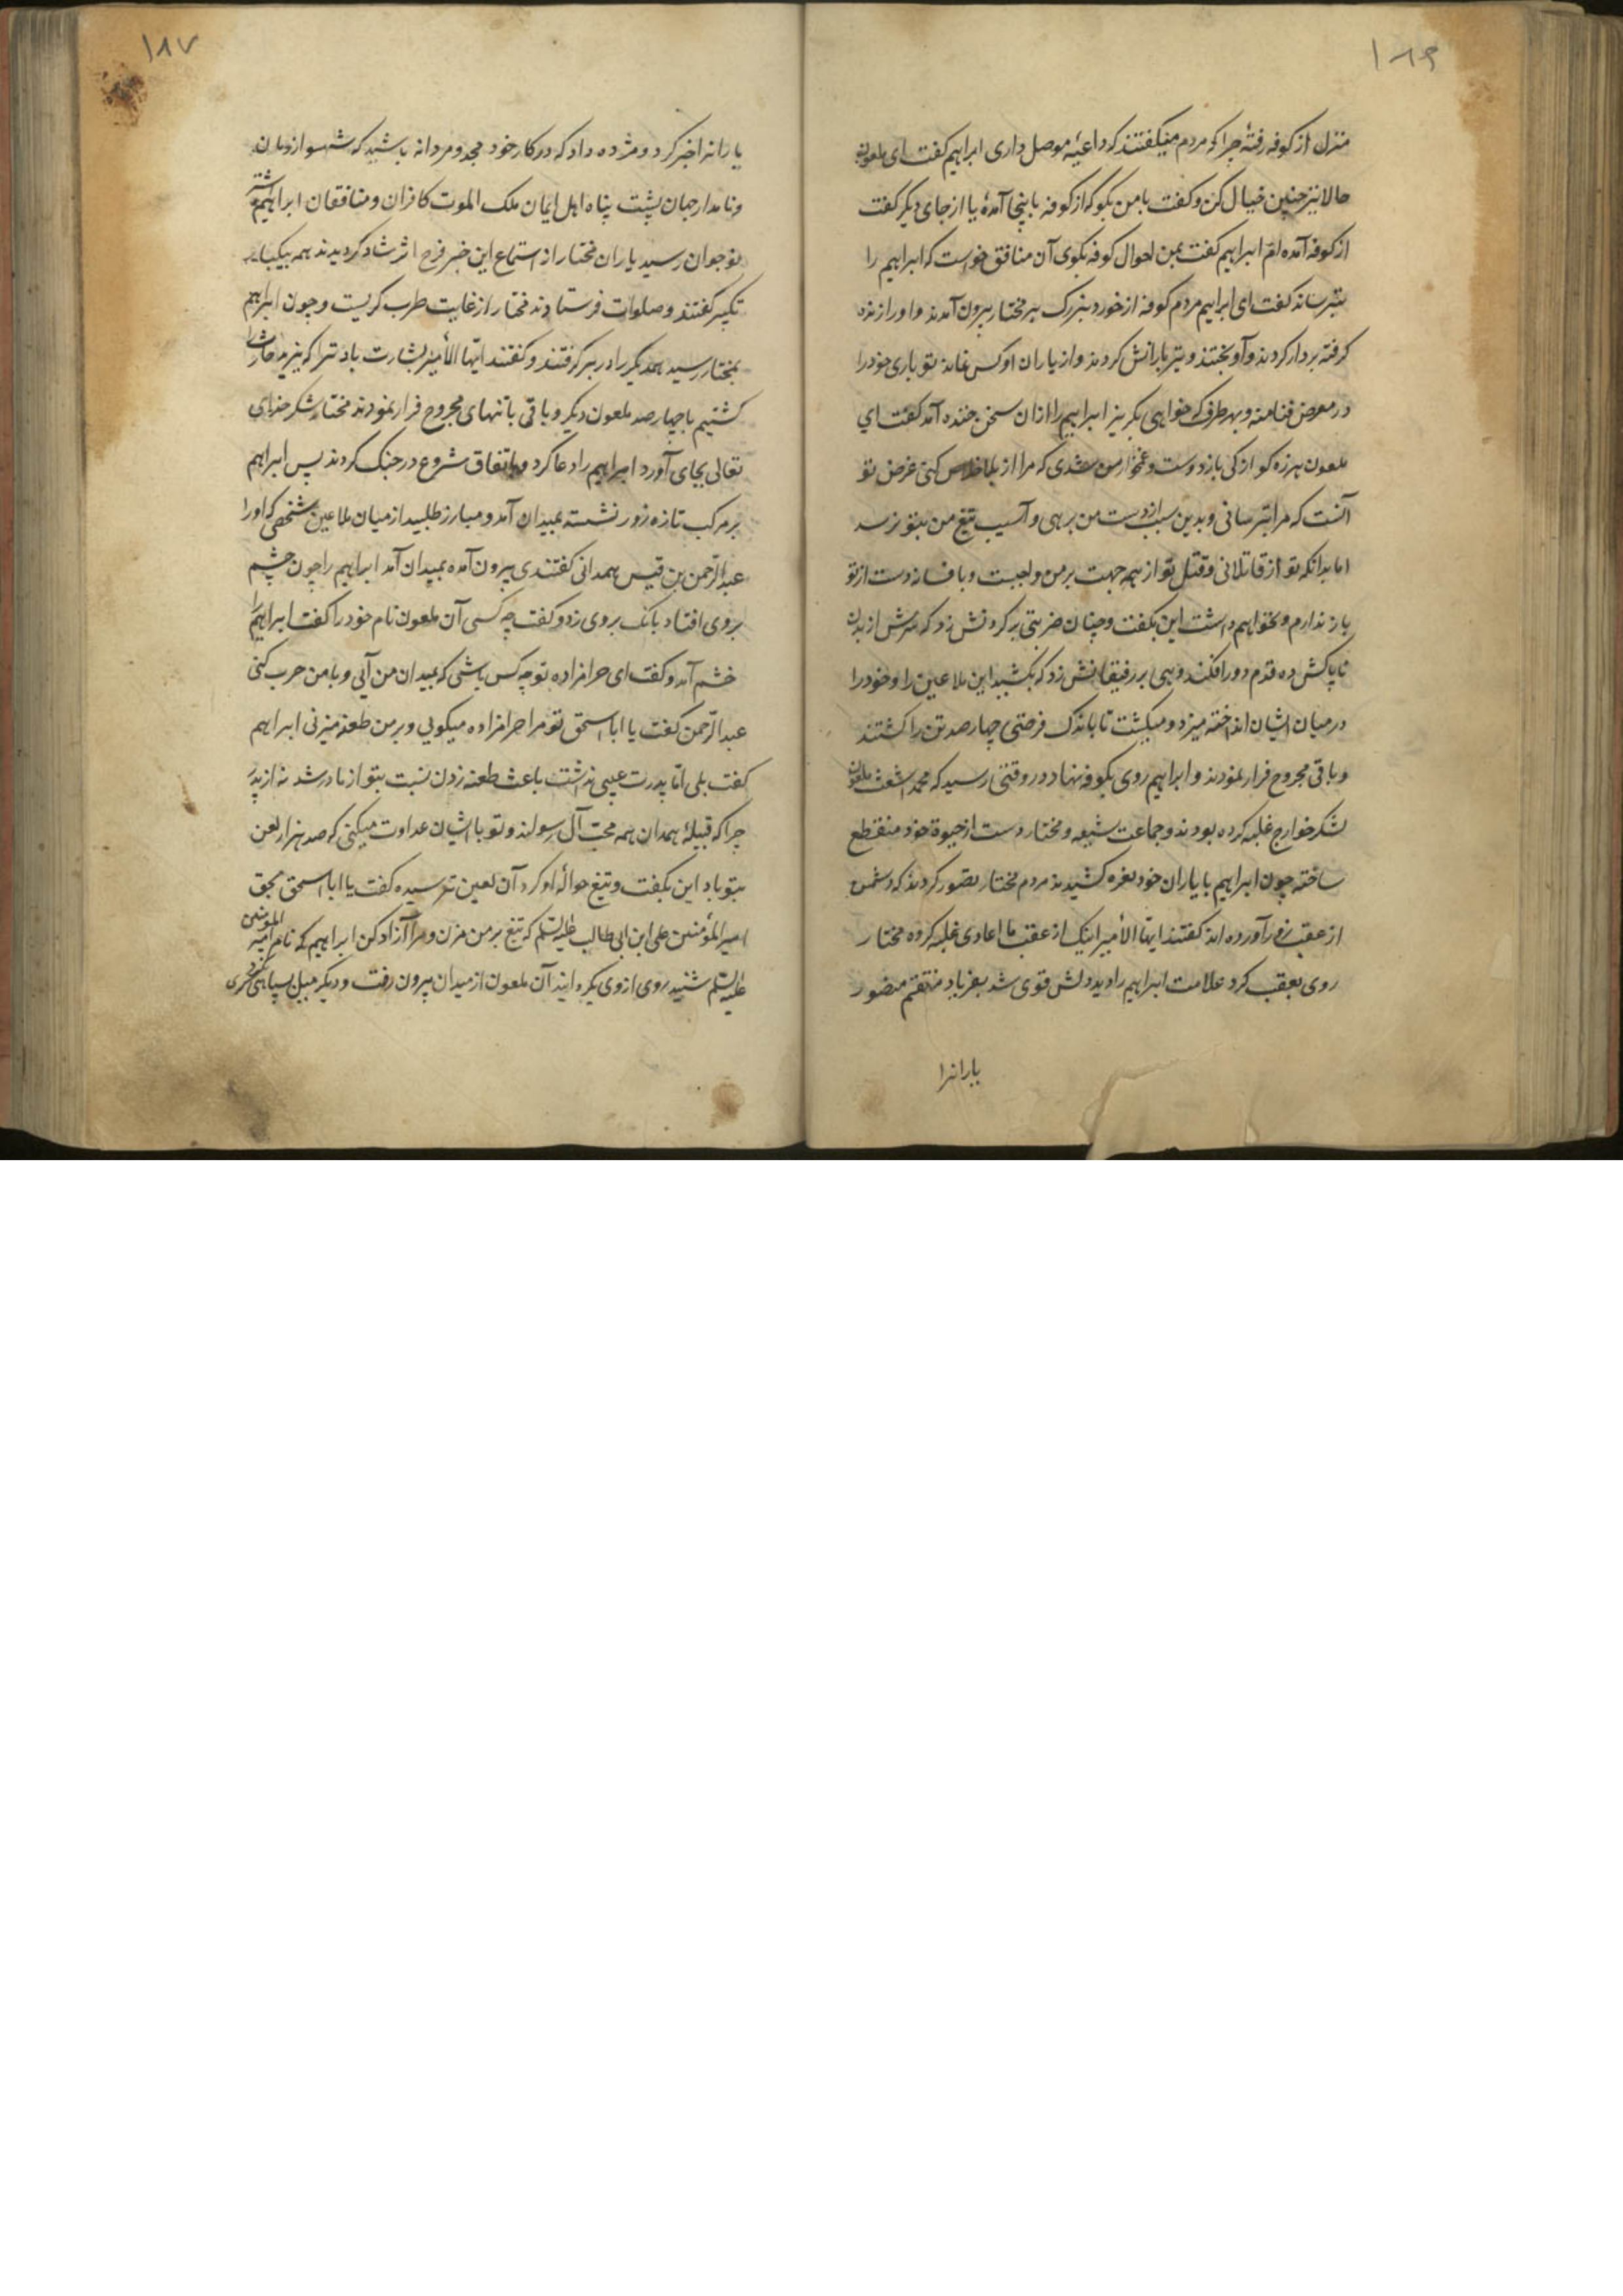 ۱۸۶
منزل از کوفه رفتهٔ چرا که مردم میگفتند که داعیهٔ موصل داری ابراهیم گفت ای ملعون
حالا نیز چنین خیال کن و گفت با من بگو که از کوفه باینجا آمدهٔ یا از جای دیگر گفت
از کوفه آمده ام ابراهیم گفت بمن احوال کوفه بگوی آن منافق خواست که ابراهیم را
بترساند گفت ای ابراهیم مردم کوفه از خورد بزرک بر مختار بیرون آمدند و او را زنده
کرفته بردار کردند و آویختند و تیر بارانش کردند و از یاران او کس نماند تو باری خود را
در معرض فنا منه و بهر طرف که خواهی بگریز ابراهیم را از ان سخن خنده آمد گفت ای
ملعون هرزه کو از کی باز دوست و غمخوار من شدی که مرا از بلا خلاص کنی غرض تو
آنست که مرا بترسانی و بدین سبب از دست من برهی و آسیب تیغ من بتو نرسد
اما بدانکه تو از قاتلانی و قتل تو از همه جهت بر من واجبست و بافسانه دست از تو
باز ندارم و نخواهم داشت این بگفت و چنان ضربتی بر کردنش زد که سرش از بدن
ناپاکش ده قدم دور افکند و هی بر رفیقانش زد که بکشید این ملاعین را و خود را
در میان ایشان انداخته میزد و میکشت تا باندک فرصتی چهار صد تن را کشتند
و باقی مجروح فرار نمودند و ابراهیم روی بکوفه نهاد و در وقتی رسید که محمد اشعث ملعون
لشکر خوارج غلبه کرده بودند و جماعت شیعه و مختار دست از حیوة خود منقطع
ساخته چون ابراهیم با یاران خود نعره کشیدند مردم مختار تصور کردند که دشمن
از عقب زور آورده اند کفتند ایها الأمیر اینک از عقب ما اعادی غلبه کرده مختار
روی بعقب کرد علامت ابراهیم را دید دلش قوی شد بفریاد منقتم منصور
یارانرا
۱۸۷
یارانرا خبر کرد و مژده داد که در کار خود مجد و مردانه باشید که شهسوار زمان
و نامدار جهان پشت پناه اهل ایمان ملک الموت کافران و منافقان ابراهیم اشتر
نوجوان رسید یاران مختار از استماع این خبر فرح اثر شاد کردیدند همه بیکبار
تکبیر کفتند و صلوات فرستادند مختار از غایت طرب کریست و چون ابراهیم
بمختار رسید همدیگر را در بر کرفتند و کفتند ایها الأمیر بشارت باد ترا که یزید حارث را
کشتیم با چهار صد ملعون دیگر و باقی با تنهای مجروح فرار نمودند مختار شکر خدای
تعالی بجای آورد ابراهیم را دعا کرد و باتفاق شروع در جنک کردند پس ابراهیم
بر مرکب تازه زور نشسته بمیدان آمد و مبارز طلبید از میان ملاعین شخصی که او را
عبد الرحمن بن قیس همدانی کفتندی بیرون آمده بمیدان آمد ابراهیم را چون چشم
بروی افتاد بانک بروی زد و کفت چه کسی آن ملعون نام خود را کفت ابراهیم را
خشم آمد و کفت ای حرامزاده تو چه کس باشی که بمیدان من آیی و با من حرب کنی
عبد الرحمن کفت یا ابا اسحق تو مرا حرامزاده میکویی و بر من طعنه میزنی ابراهیم
کفت بلی امّا پدرت عیبی نداشت باعث طعنه زدن نسبت بتو از مادر شد نه از پدر
چرا که قبیلهٔ همدان همه محبّ آل رسولند و تو با ایشان عداوت میکنی که صد هزار لعن
بتو باد این بکفت و تیغ حوالهٔ او کرد آن لعین ترسیده کفت یا ابا اسحق بحق
امیر المؤمنین علی ابن ابی طالب علیه السلم که تیغ بر من مزن و مرا آزاد کن ابراهیم که نام امیر المومنین
علیه السلم شنید روی از وی بکردانید آن ملعون از میدان بیرون رفت و دیگر میل سپاهی کری